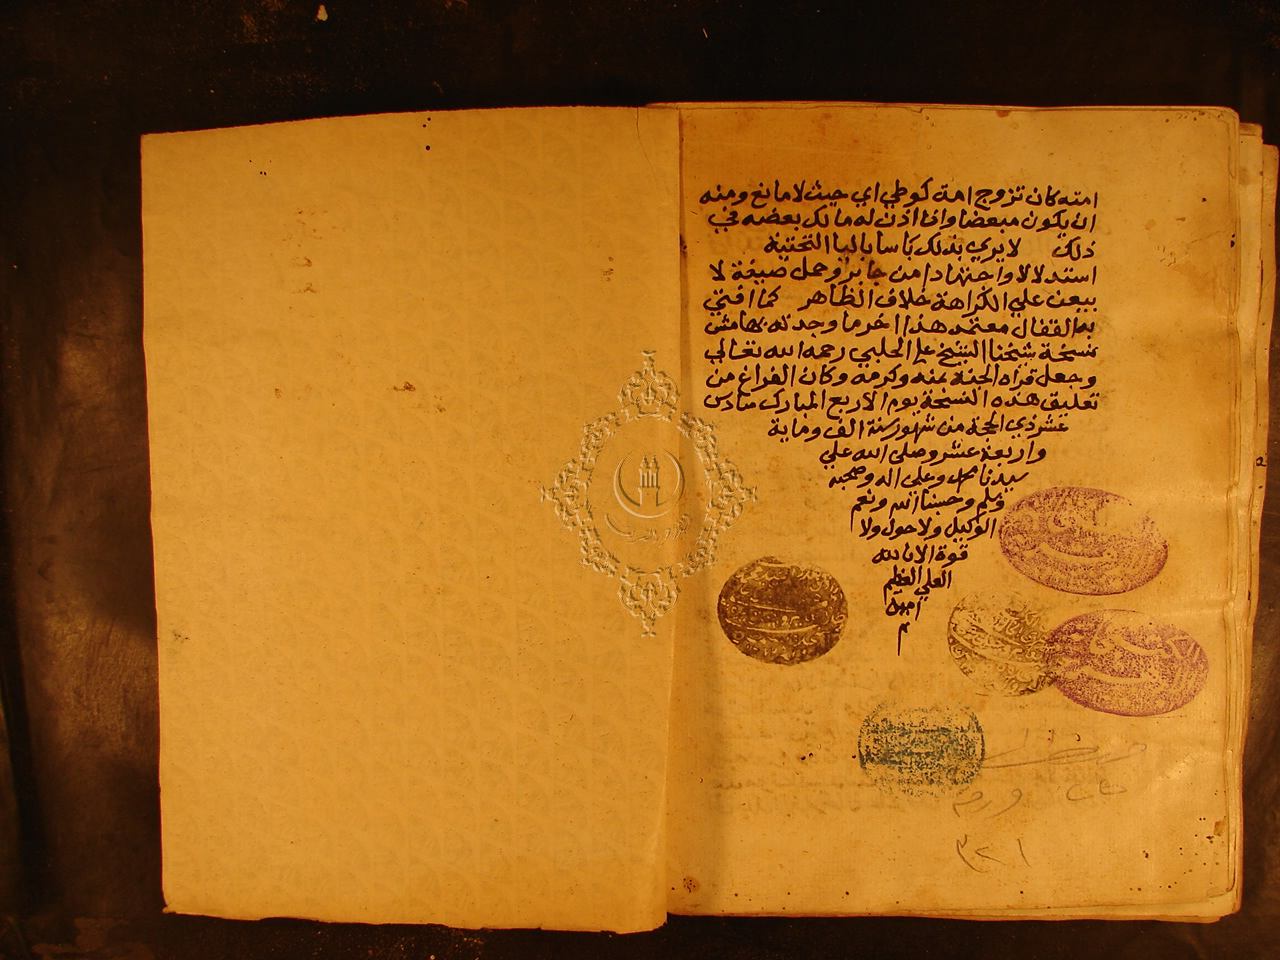 امته كان تزوج امة كوطي اي حيث لا مانع ومنه
ان يكون مبعضا وانا اذن له مالك بعضه في
ذلك لا يري بذلك باسا باليا التحتية
استدلالا واجتهادا من جابر وحمل صيغة لا
يبعن علي الكراهة خلاف الظاهر كما افتي
به القفال معتمد هذا اخر ما وجدته بهامش
نسخة شيخنا الشيخ علي الحلبي رحمه الله تعالي
وجعل قراه الجنة بمنه وكرمه وكان الفراغ من
تعليق هذه النسخة يوم الاربع المبارك سادس
عشر ذي الحجة من شهور سنة الف وماية
واربعة عشر وصلي الله علي
سيدنا محمد وعلي اله وصحبه
وسلم وحسبنا الله ونعم
الوكيل ولا حول ولا
قوة الا بالله
العلي العظيم
امين
م
٣٢١